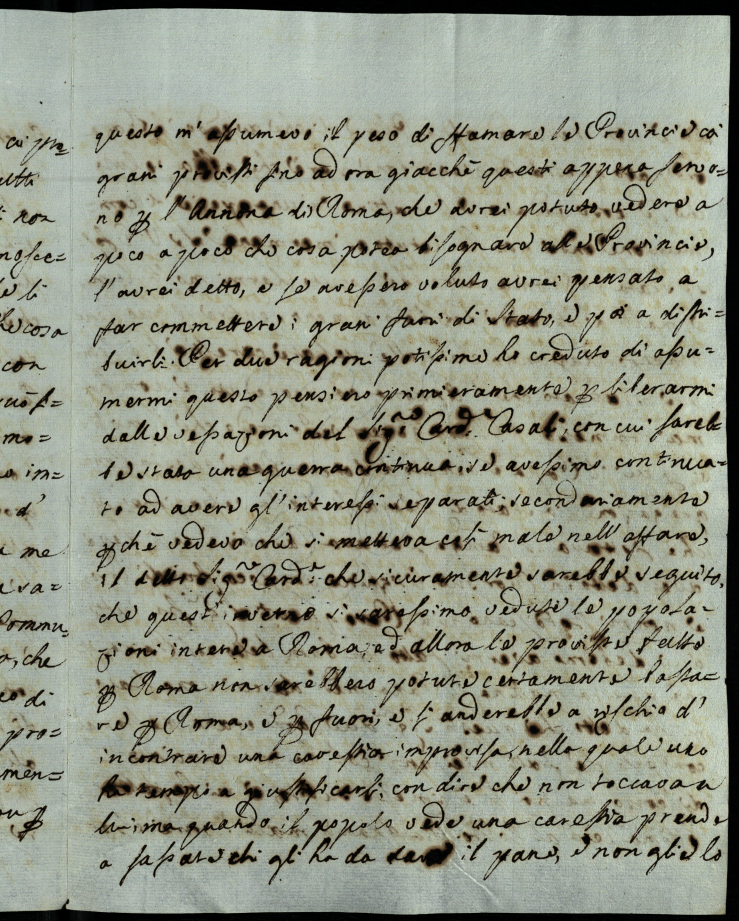 questo m'assumevo il peso di sfamare le Provincie coi
grani provisti sino ad ora giacchè questi appena servo=
no p l'Annona di Roma, che avrei potuto vedere a
poco a poco che cosa potea bisognare alle Provincie,
l'avrei detto, e se avessero voluto avrei pensato a
far commettere i grani fuori di Stato, e poi a distri=
buirli. Per due ragioni potissime ho creduto di assu=
mermi questo pensiero primieramente p liberarmi
dalle vessazioni del Sig.re Card.e Casali, con cui sareb=
be stata una guerra continua, se avessimo continua=
to ad avere gl'interessi separati, secondariamente
pchè vedevo che si metteva così male nell'affare,
il detto Sig.re Card.e che sicuramente sarebbe seguito,
che quest'inverno si saressimo vedute le popola=
zioni intere a Roma, ed allora le proviste fatte
p Roma non sarebbero potute certamente basta=
re p Roma, e p fuori, e si anderebbe a rischio d'
incontrare una carestia improvisa, nella quale uno
ha tempo a giustificarsi, con dire che non toccava a
lui, ma quando il popolo vede una carestia prende
a sassate chi gli ha da dare il pane, e non glie lo
cui pre=
utti
i non
nosce=
le li
he cosa
con
mo=
o im=
d'
a me
a sa=
Commu=
o, che
eo di
pro=
men=
p